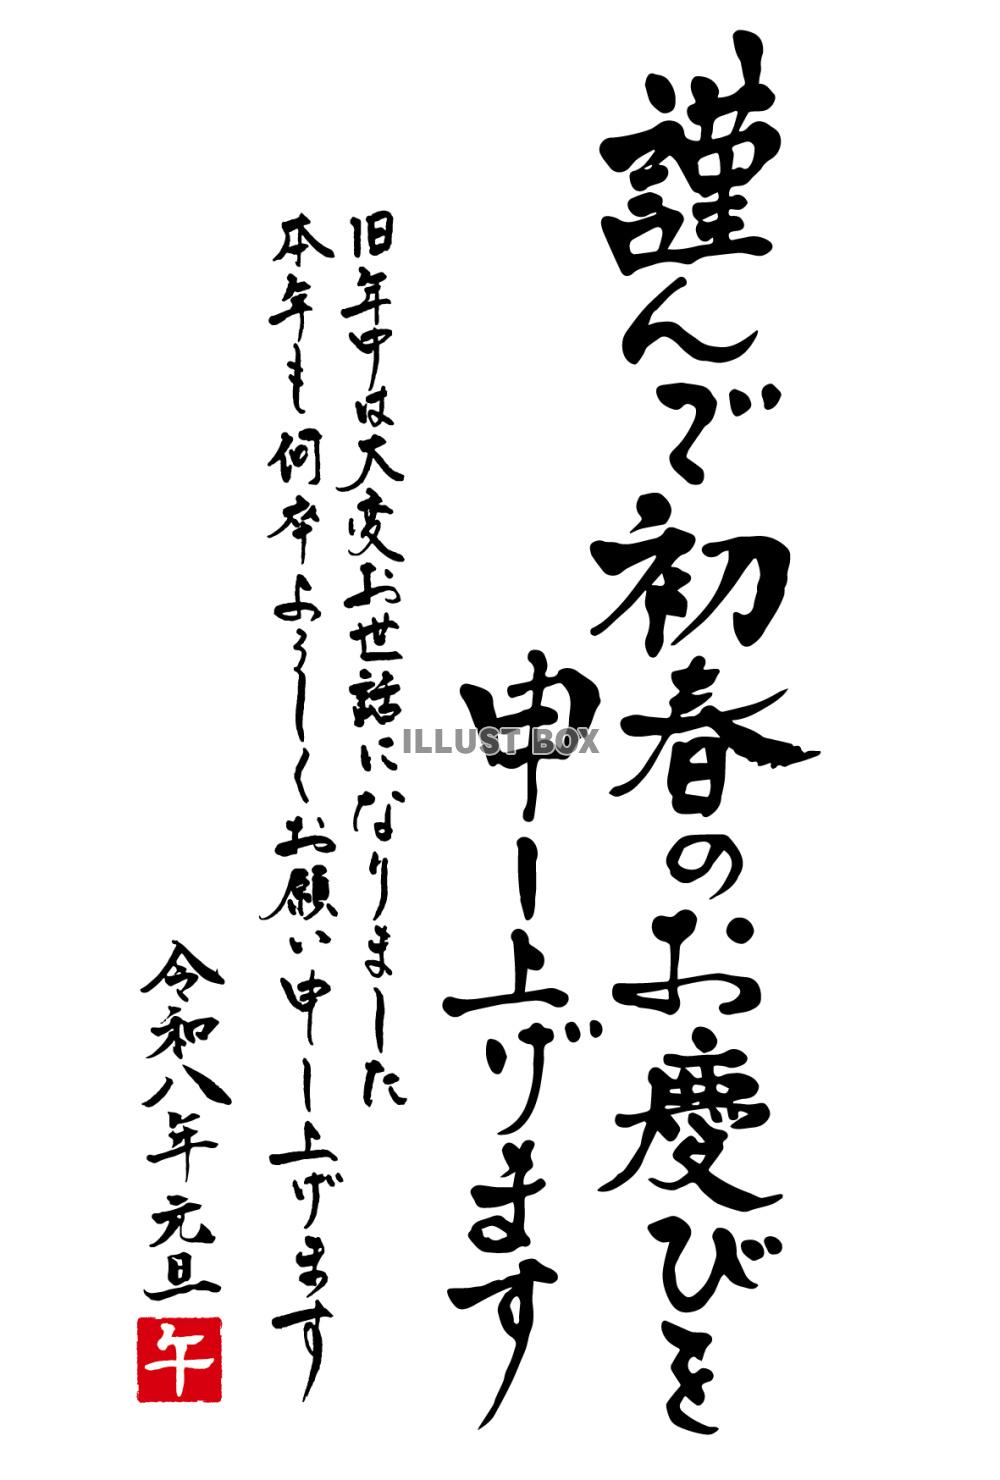 謹んで初春のお慶びを
申し上げます
旧年中は大変お世話になりました
本年も何卒よろしくお願い申し上げます
令和八年 元旦
午
ILLUST BOX